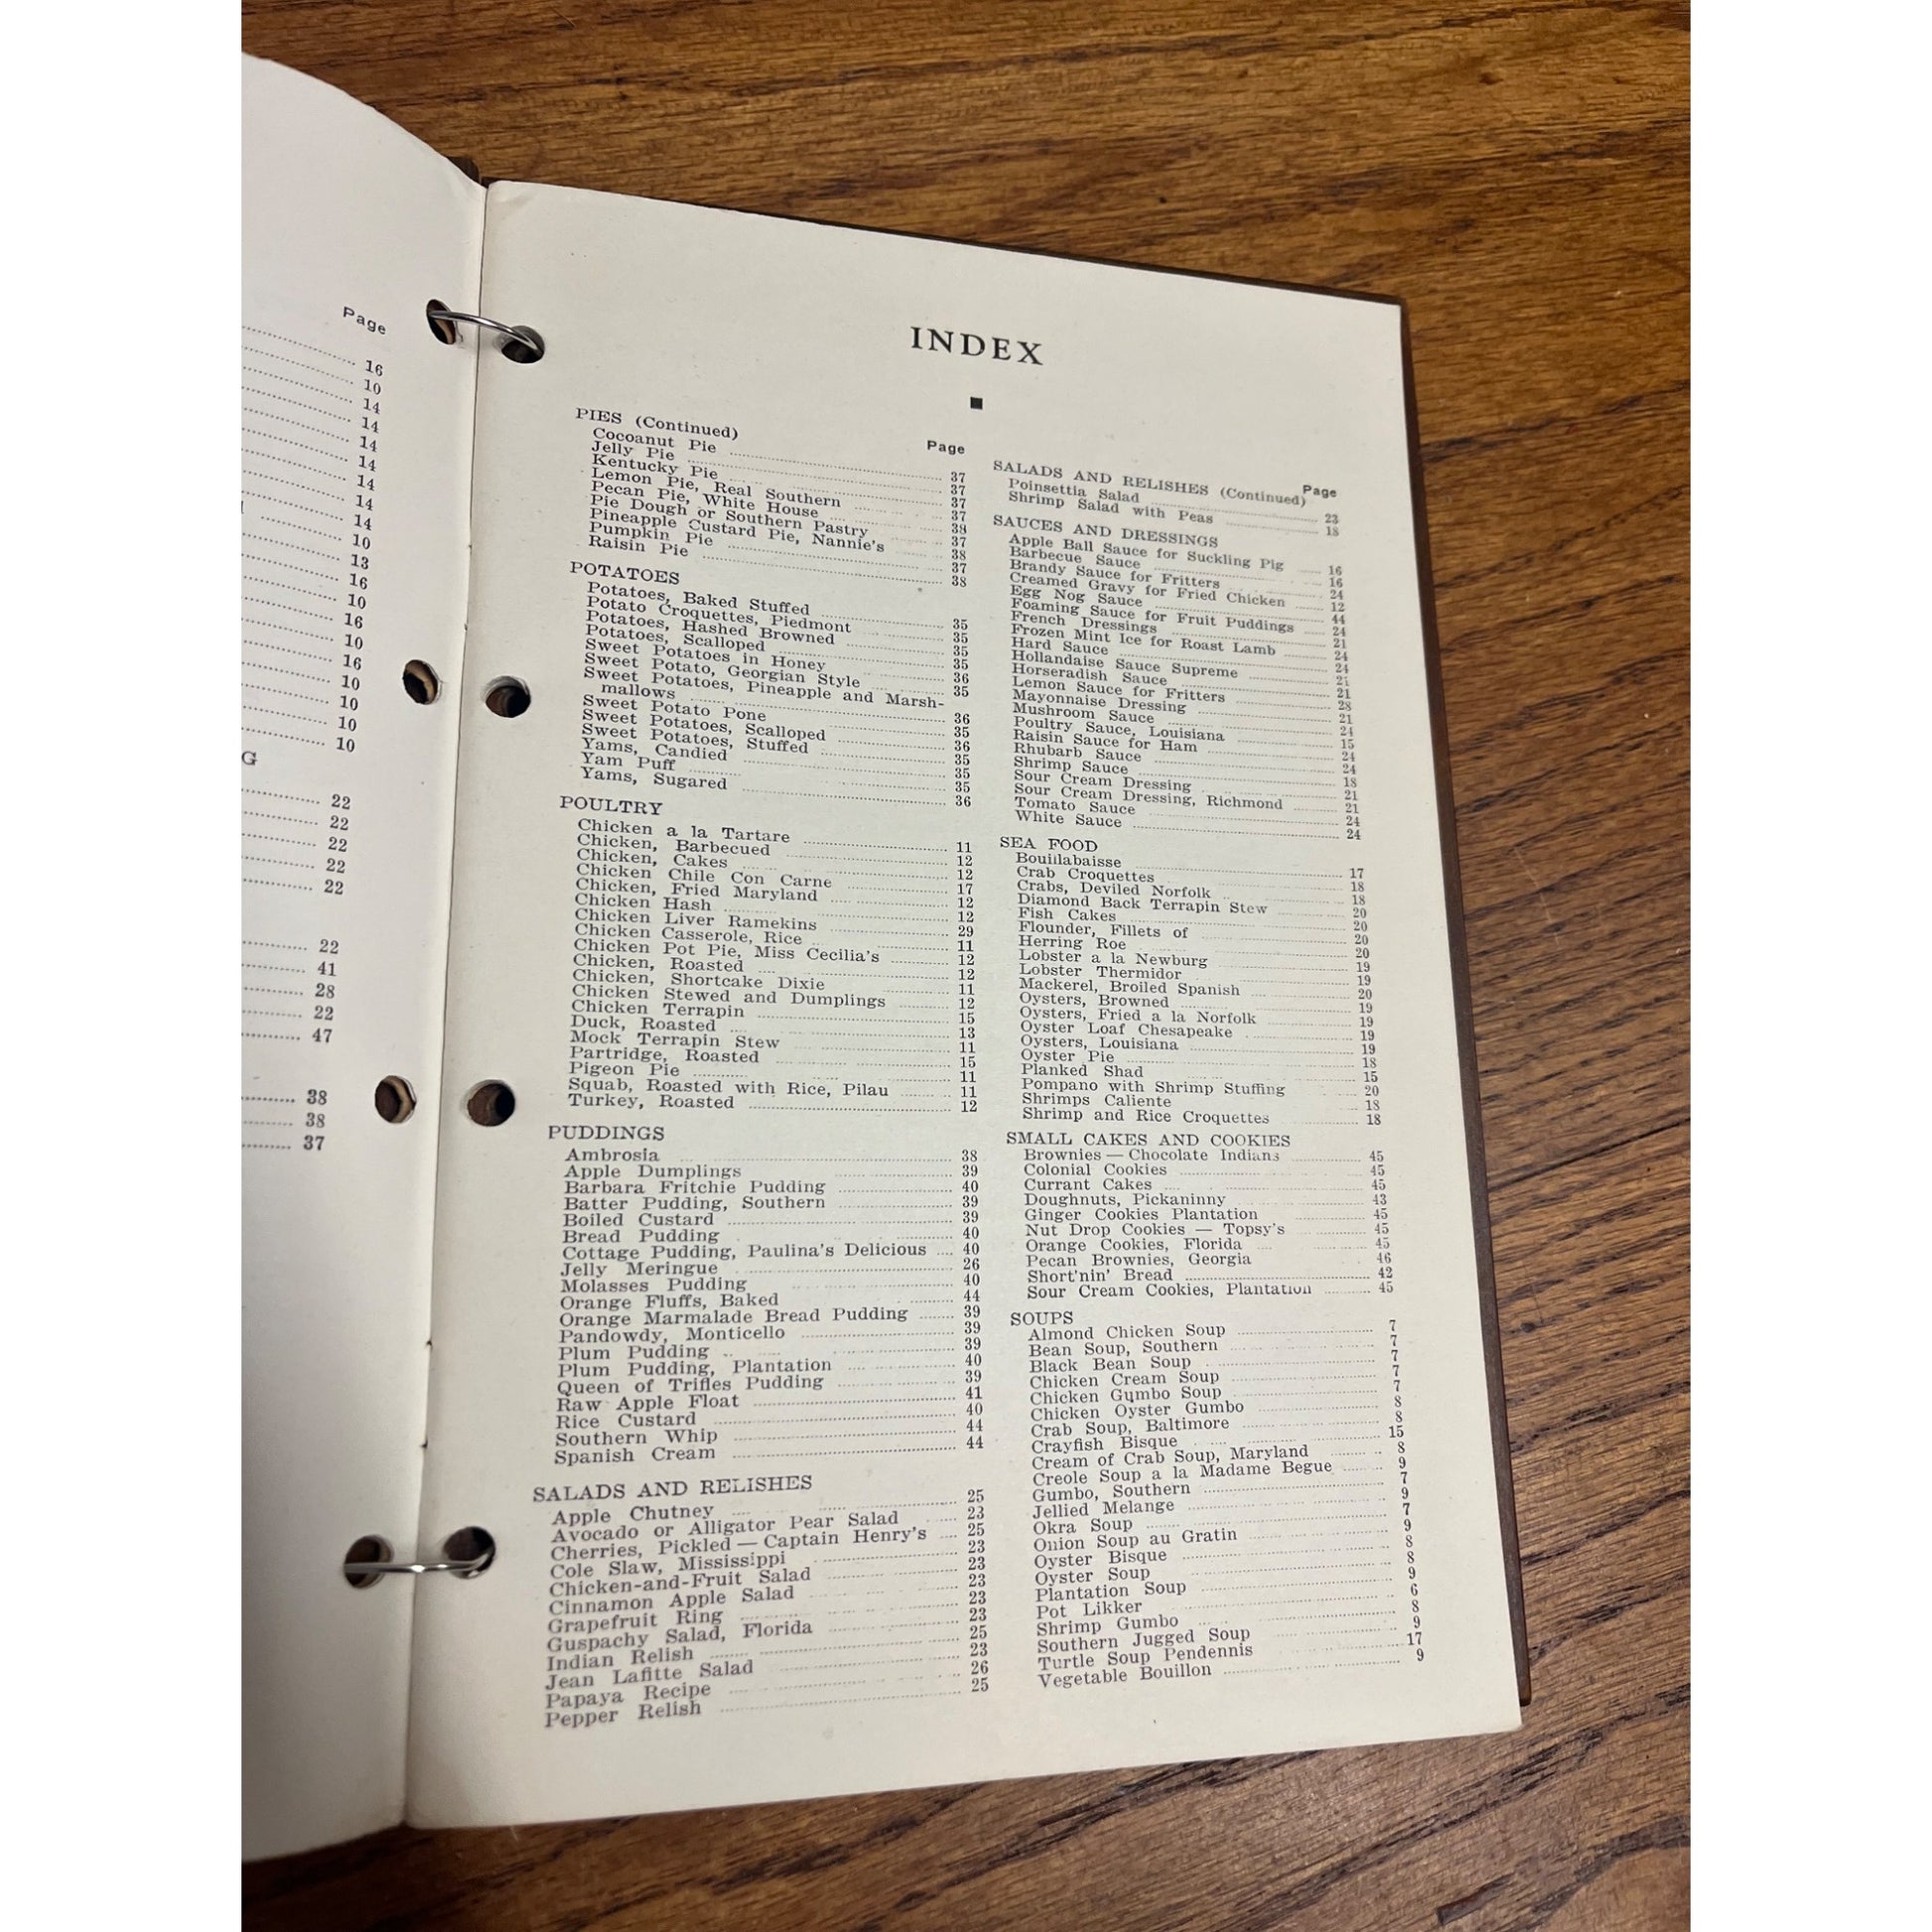 Page
16
10
14
14
14
14
14
14
14
10
13
16
10
16
10
16
10
10
10
10
G
22
22
22
22
22
22
41
28
22
47
38
38
37
INDEX
PIES (Continued)
Page
Cocoanut Pie 37
Jelly Pie 37
Kentucky Pie 37
Lemon Pie, Real Southern 37
Pecan Pie, White House 38
Pie Dough or Southern Pastry 37
Pineapple Custard Pie, Nannie's 38
Pumpkin Pie 37
Raisin Pie 38
POTATOES
Potatoes, Baked Stuffed 35
Potato Croquettes, Piedmont 35
Potatoes, Hashed Browned 35
Potatoes, Scalloped 35
Sweet Potatoes in Honey 36
Sweet Potato, Georgian Style 35
Sweet Potatoes, Pineapple and Marsh-
mallows 36
Sweet Potato Pone 35
Sweet Potatoes, Scalloped 36
Sweet Potatoes, Stuffed 35
Yams, Candied 35
Yam Puff 35
Yams, Sugared 36
POULTRY
Chicken a la Tartare 11
Chicken, Barbecued 12
Chicken, Cakes 12
Chicken Chile Con Carne 17
Chicken, Fried Maryland 12
Chicken Hash 12
Chicken Liver Ramekins 29
Chicken Casserole, Rice 11
Chicken Pot Pie, Miss Cecilia's 12
Chicken, Roasted 12
Chicken, Shortcake Dixie 11
Chicken Stewed and Dumplings 12
Chicken Terrapin 15
Duck, Roasted 13
Mock Terrapin Stew 11
Partridge, Roasted 15
Pigeon Pie 11
Squab, Roasted with Rice, Pilau 11
Turkey, Roasted 12
PUDDINGS
Ambrosia 38
Apple Dumplings 39
Barbara Fritchie Pudding 40
Batter Pudding, Southern 39
Boiled Custard 39
Bread Pudding 40
Cottage Pudding, Paulina's Delicious 40
Jelly Meringue 26
Molasses Pudding 40
Orange Fluffs, Baked 44
Orange Marmalade Bread Pudding 39
Pandowdy, Monticello 39
Plum Pudding 39
Plum Pudding, Plantation 40
Queen of Trifles Pudding 39
Raw Apple Float 41
Rice Custard 40
Southern Whip 44
Spanish Cream 44
SALADS AND RELISHES
Apple Chutney 25
Avocado or Alligator Pear Salad 23
Cherries, Pickled — Captain Henry's 25
Cole Slaw, Mississippi 23
Chicken-and-Fruit Salad 23
Cinnamon Apple Salad 23
Grapefruit Ring 23
Guspachy Salad, Florida 23
Indian Relish 25
Jean Lafitte Salad 23
Papaya Recipe 26
Pepper Relish 25
SALADS AND RELISHES (Continued)
Page
Poinsettia Salad 23
Shrimp Salad with Peas 18
SAUCES AND DRESSINGS
Apple Ball Sauce for Suckling Pig 16
Barbecue Sauce 16
Brandy Sauce for Fritters 24
Creamed Gravy for Fried Chicken 12
Egg Nog Sauce 44
Foaming Sauce for Fruit Puddings 24
French Dressings 21
Frozen Mint Ice for Roast Lamb 24
Hard Sauce 24
Hollandaise Sauce Supreme 21
Horseradish Sauce 21
Lemon Sauce for Fritters 28
Mayonnaise Dressing 21
Mushroom Sauce 24
Poultry Sauce, Louisiana 15
Raisin Sauce for Ham 24
Rhubarb Sauce 24
Shrimp Sauce 18
Sour Cream Dressing 21
Sour Cream Dressing, Richmond 21
Tomato Sauce 24
White Sauce 24
SEA FOOD
Bouillabaisse 17
Crab Croquettes 18
Crabs, Deviled Norfolk 18
Diamond Back Terrapin Stew 20
Fish Cakes 20
Flounder, Fillets of 20
Herring Roe 20
Lobster a la Newburg 19
Lobster Thermidor 19
Mackerel, Broiled Spanish 20
Oysters, Browned 19
Oysters, Fried a la Norfolk 19
Oyster Loaf Chesapeake 19
Oysters, Louisiana 19
Oyster Pie 18
Planked Shad 15
Pompano with Shrimp Stuffing 20
Shrimps Caliente 18
Shrimp and Rice Croquettes 18
SMALL CAKES AND COOKIES
Brownies — Chocolate Indians 45
Colonial Cookies 45
Currant Cakes 45
Doughnuts, Pickaninny 43
Ginger Cookies Plantation 45
Nut Drop Cookies — Topsy's 45
Orange Cookies, Florida 45
Pecan Brownies, Georgia 46
Short'nin' Bread 42
Sour Cream Cookies, Plantation 45
SOUPS
Almond Chicken Soup 7
Bean Soup, Southern 7
Black Bean Soup 7
Chicken Cream Soup 7
Chicken Gumbo Soup 7
Chicken Oyster Gumbo 8
Crab Soup, Baltimore 8
Crayfish Bisque 15
Cream of Crab Soup, Maryland 8
Creole Soup a la Madame Begue 9
Gumbo, Southern 7
Jellied Melange 9
Okra Soup 7
Onion Soup au Gratin 9
Oyster Bisque 8
Oyster Soup 8
Plantation Soup 9
Pot Likker 6
Shrimp Gumbo 8
Southern Jugged Soup 9
Turtle Soup Pendennis 17
Vegetable Bouillon 9